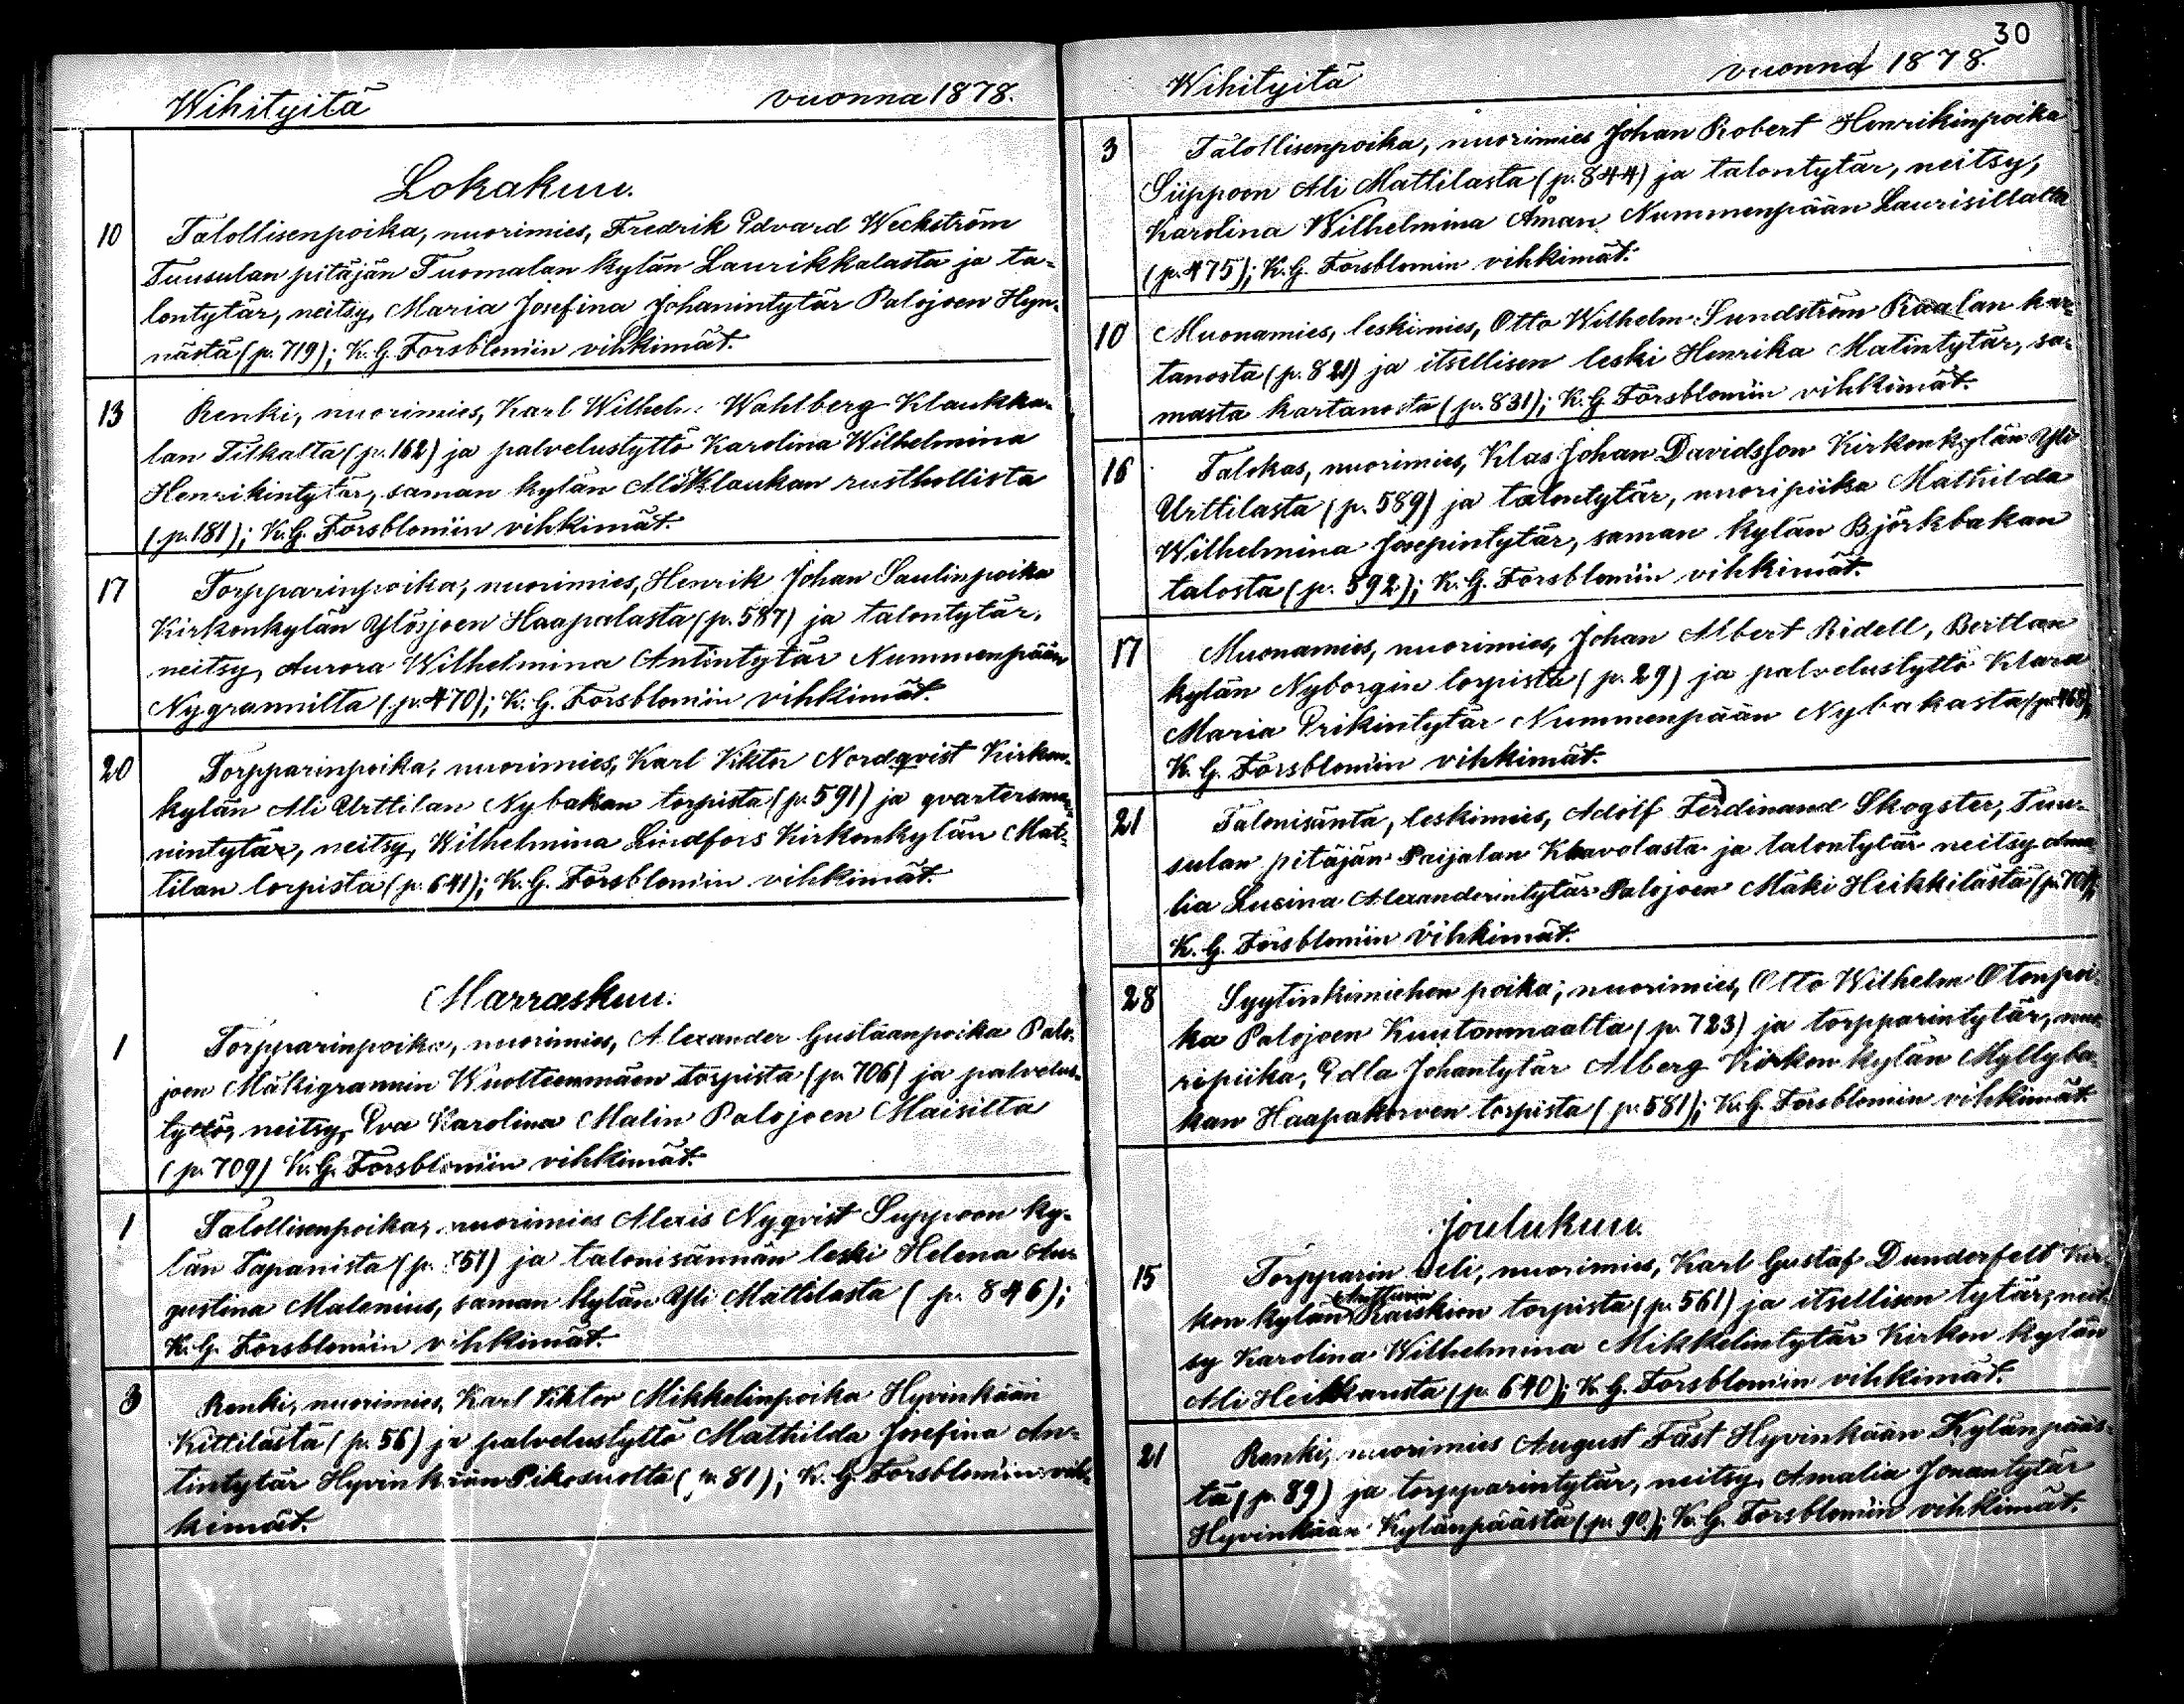 Wihityitä vuonna 1878.
Lokakuu.
10 Talollisenpoika, nuorimies, Fredrik Edvard Weckström
Tuusulan pitäjän Tuomalan kylän Laurikkalasta ja ta-
lontytär, neitsy, Maria Josefina Johanintytär Palojoen Hyn-
nästä (p. 719); K. G. Forsblomiin vihkimät.
13 Renki, nuorimies, Karl Wilhelm Wahlberg Klaukka-
lan Tilkalta (p. 162) ja palvelustyttö Karolina Wilhelmina
Henrikintytär, saman kylän Ali Klaukan rusthollista
(p. 181); K. G. Forsblomiin vihkimät.
17 Torpparinpoika, nuorimies, Henrik Johan Saulinpoika
Kirkonkylän Ylösjoen Haapalasta (p. 587) ja talontytär,
neitsy, Aurora Wilhelmina Antintytär Nummenpään
Nygrannilta (p. 470); K. G. Forsblomiin vihkimät.
20 Torpparinpoika, nuorimies, Karl Viktor Nordqvist Kirkon-
kylän Ali Urttilan Nybakan torpista (p. 591) ja qvartersman-
nintytär, neitsy, Wilhelmina Lindfors Kirkonkylän Mat-
tilan torpista (p. 641); K. G. Forsblomiin vihkimät.
Marraskuu.
1 Torpparinpoika, nuorimies, Alexander Gustaanpoika Palo-
joen Mäkigrannin Wuolteenmäen torpista (p. 706) ja palvelus-
tyttö, neitsy, Eva Karolina Malin Palojoen Maisilta
(p. 709) K. G. Forsblomiin vihkimät.
1 Talollisenpoika, nuorimies Alexis Nyqvist Suppoon ky-
län Tapanista (p. 51) ja talonisännän leski Helena Au-
gustina Malenius, saman kylän Yli Mattilasta (p. 846);
K. G. Forsblomiin vihkimät.
3 Renki, nuorimies, Karl Viktor Mikkelinpoika Hyvinkään
Kittilästä (p. 56) ja palvelustyttö Mathilda Josefina An-
tintytär Hyvinkään Pikosuolta (p. 81); K. G. Forsblomiin vih-
kimät.
30
Wihityitä vuonna 1878.
3 Talollisenpoika, nuorimies Johan Robert Henrikinpoika
Siippoon Ali Mattilasta (p. 844) ja talontytär, neitsy,
Karolina Wilhelmina Åman Nummenpään Laurisillalta
(p. 475); K. G. Forsblomin vihkimät.
10 Muonamies, leskimies, Otto Wilhelm Sundström Raalan kar-
tanosta (p. 821) ja itsellisen leski Henrika Matintytär, sa-
masta kartanosta (p. 831); K. G. Forsblomiin vihkimät.
16 Talokas, nuorimies, Klas Johan Davidsson Kirkonkylän Yli
Urttilasta (p. 589) ja talontytär, nuoripiika Mathilda
Wilhelmina Josepintytär, saman kylän Björkbakan
talosta (p. 592); K. G. Forsblomiin vihkimät.
17 Muonamies, nuorimies, Johan Albert Ridell, Bertlan
kylän Nyborgin torpista (p. 29) ja palvelustyttö Klara
Maria Erikintytär Nummenpään Nybakasta (p. 468);
K. G. Forsblomiin vihkimät.
21 Talonisäntä, leskimies, Adolf Ferdinand Skogster, Tuu-
sulan pitäjän Paijalan Klavolasta ja talontytär neitsy Ama-
lia Lusina Alexanderintytär Palojoen Mäki Heikkilästä
K. G. Forsblomiin vihkimät.
28 Syytinkimiehen poika, nuorimies, Otto Wilhelm Otonpoi-
ka Palojoen Kuutanmaalta (p. 723) ja torpparintytär, nuo-
ripiika, Edla Johantytär Alberg Kirkonkylän Myllyba-
kan Haapakorven torpista (p. 581); K. G. Forsblomiin vihkimät.
Joulukuu.
15 Torpparin veli, nuorimies, Karl Gustaf Dunderfelt Kir-
kon kylän Raiskion torpista (p. 561) ja itsellisen tytär, neit-
sy Karolina Wilhelmina Mikkelintytär Kirkon kylän
Ali Heikkarista (p. 640); K. G. Forsblomiin vihkimät.
21 Renki, nuorimies August Fäst Hyvinkään Kylänpääs-
tä (p. 89) ja torpparintytär, neitsy, Amalia Johantytär
Hyvinkään Kylänpäästä (p. 90.); K. G. Forsblomiin vihkimät.